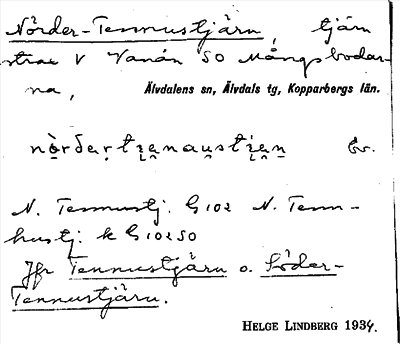 Nörder-Tennustjärn, tjärn
strax V Vanån SO Mångsbodar-
na, Älvdalens sn, Älvdals tg, Kopparbergs län.
nò̱rdeṛtri̯e̯nau̯sti̯e̯ṉ Ev.
N. Tennustj. G 102 N. Tenn-
hustj. k G 102 SO
Jfr Tennustjärn o. Söder-
Tennustjärn.
HELGE LINDBERG 1934.